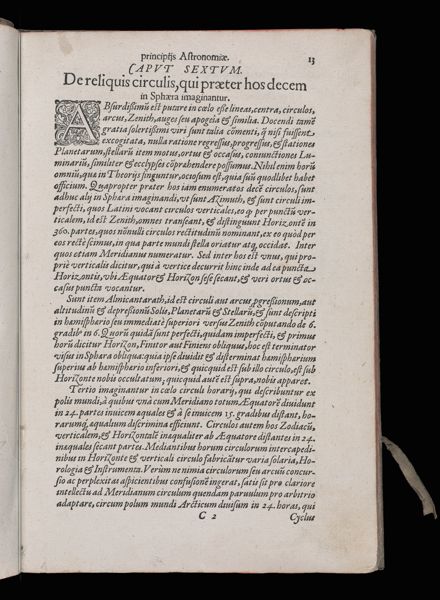 principijs Astronomiæ. 13
CAPVT SEXTVM.
De reliquis circulis, qui præter hos decem
in Sphæra imaginantur.
ABsurdißimũ est putare in cœlo esse lineas, centra, circulos,
arcus, Zenith, auges seu apogeia & similia. Docendi tamẽ
gratia solertißimi viri sunt talia cõmenti, q̃ nisi fuissent
excogitata, nulla ratione regressus, progressus, & stationes
Planetarum, stellarũ item motus, ortus & occasus, coniunctiones Lu-
minariũ, similiter & ecclypses cõprahendere possumus. Nihil enim horũ
omniũ, quæ in Theorijs finguntur, ociosum est, quia suũ quodlibet habet
officium. Quapropter præter hos iam enumeratos decẽ circulos, sunt
adhuc alij in Sphæra imaginandi, vt sunt Azimuth, & sunt circuli im-
perfecti, quos Latini vocant circulos verticales, eo q̃ per punctũ ver-
ticalem, id est Zenith, omnes transeant, & distinguunt Horizontẽ in
360. partes, quos nõnulli circulos rectitudinũ nominant, ex eo quòd per
eos rectè scimus, in qua parte mundi stella oriatur atq; occidat. Inter
quos etiam Meridianus numeratur. Sed inter hos est vnus, qui pro-
priè verticalis dicitur, qui à vertice decurrit hinc inde ad ea puncta
Horizontis, vbi Æquator & Horizon sese secant, & veri ortus & oc-
casus puncta vocantur.
Sunt item Almicantarath, id est circuli aut arcus ꝓgressionum, aut
altitudinũ & depressionũ Solis, Planetarũ & Stellarũ, & sunt descripti
in hamisphærio seu immediatè superiori versus Zenith cõputando de 6.
gradib⁹ in 6. Quorũ quidã sunt perfecti, quidam imperfecti, & primus
horũ dicitur Horizon, Finitor aut Finiens obliquus, hoc est terminator
visus in Sphæra obliqua: quia ipse diuidit & disterminat hamisphærium
superius ab hamisphærio inferiori, & quicquid est sub illo circulo, est sub
Horizonte nobis occultatum, quicquid autẽ est supra, nobis apparet.
Tertio imaginantur in cœlo circuli horarij, qui describuntur ex
polis mundi, à quibus vnà cum Meridiano totum Æquatorẽ diuidunt
in 24. partes inuicem æquales & à se inuicem 15. gradibus distant, ho-
rarumq; æqualium discrimina efficiunt. Circulos autem hos Zodiacũ,
verticalem, & Horizontalẽ inæqualiter ab Æquatore distantes in 24.
inæquales secant partes. Mediantibus horum circulorum intercapedi-
nibus in Horizonte & verticali circulo fabricãtur varia solaria, Ho-
rologia & Instrumenta. Verùm ne nimia circulorum seu arcuũ concur-
sio ac perplexitas aspicientibus confusionẽ ingerat, satis sit pro clariore
intellectu ad Meridianum circulum quendam paruulum pro arbitrio
adaptare, circum polum mundi Arcticum diuisum in 24. horas, qui
C 2 Cyclus